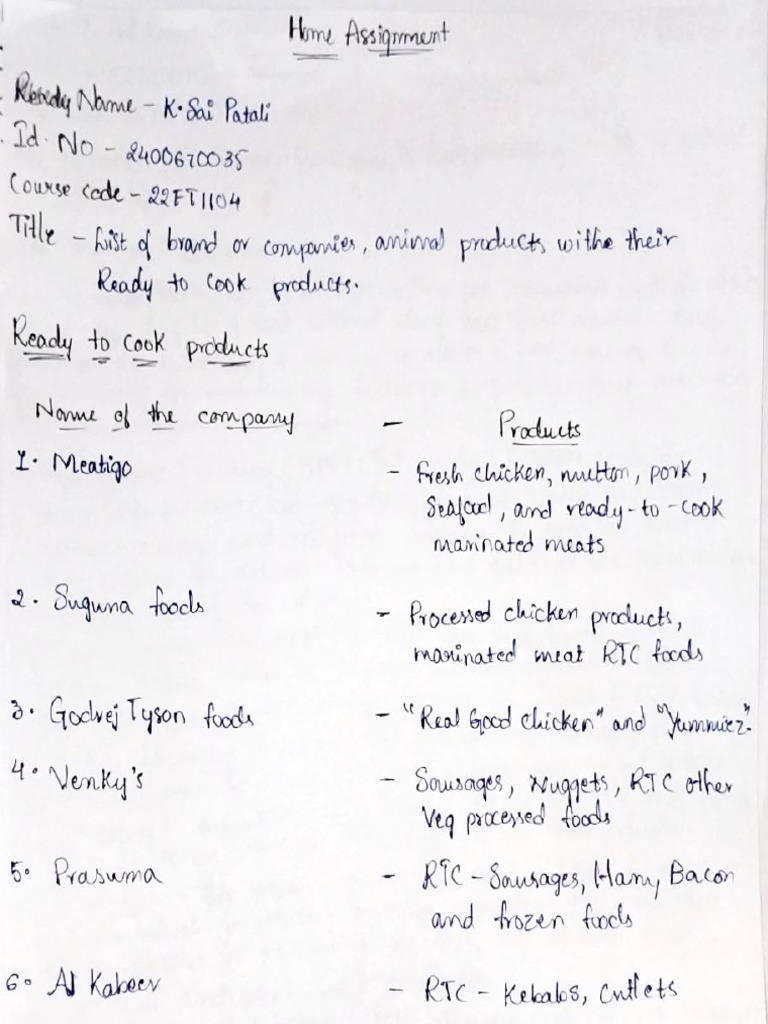 Home Assignment
Name - K. Sai Patali
Id. No - 2400670035
Course code - 22FT1104
Title - List of brand or companies, animal products withe their
Ready to cook products.
Ready to cook products
Name of the company - Products
1. Meatigo - Fresh chicken, mutton, pork,
Seafood, and ready-to-cook
marinated meats
2. Suguna foods - Processed chicken products,
marinated meat RTC foods
3. Godrej Tyson foods - "Real Good chicken" and "Yummiez".
4. Venky's - Sausages, Nuggets, RTC other
Veg processed foods
5. Prasuma - RTC - Sausages, Ham, Bacon
and frozen foods
6. Al Kabeer - RTC - Kebabs, Cutlets